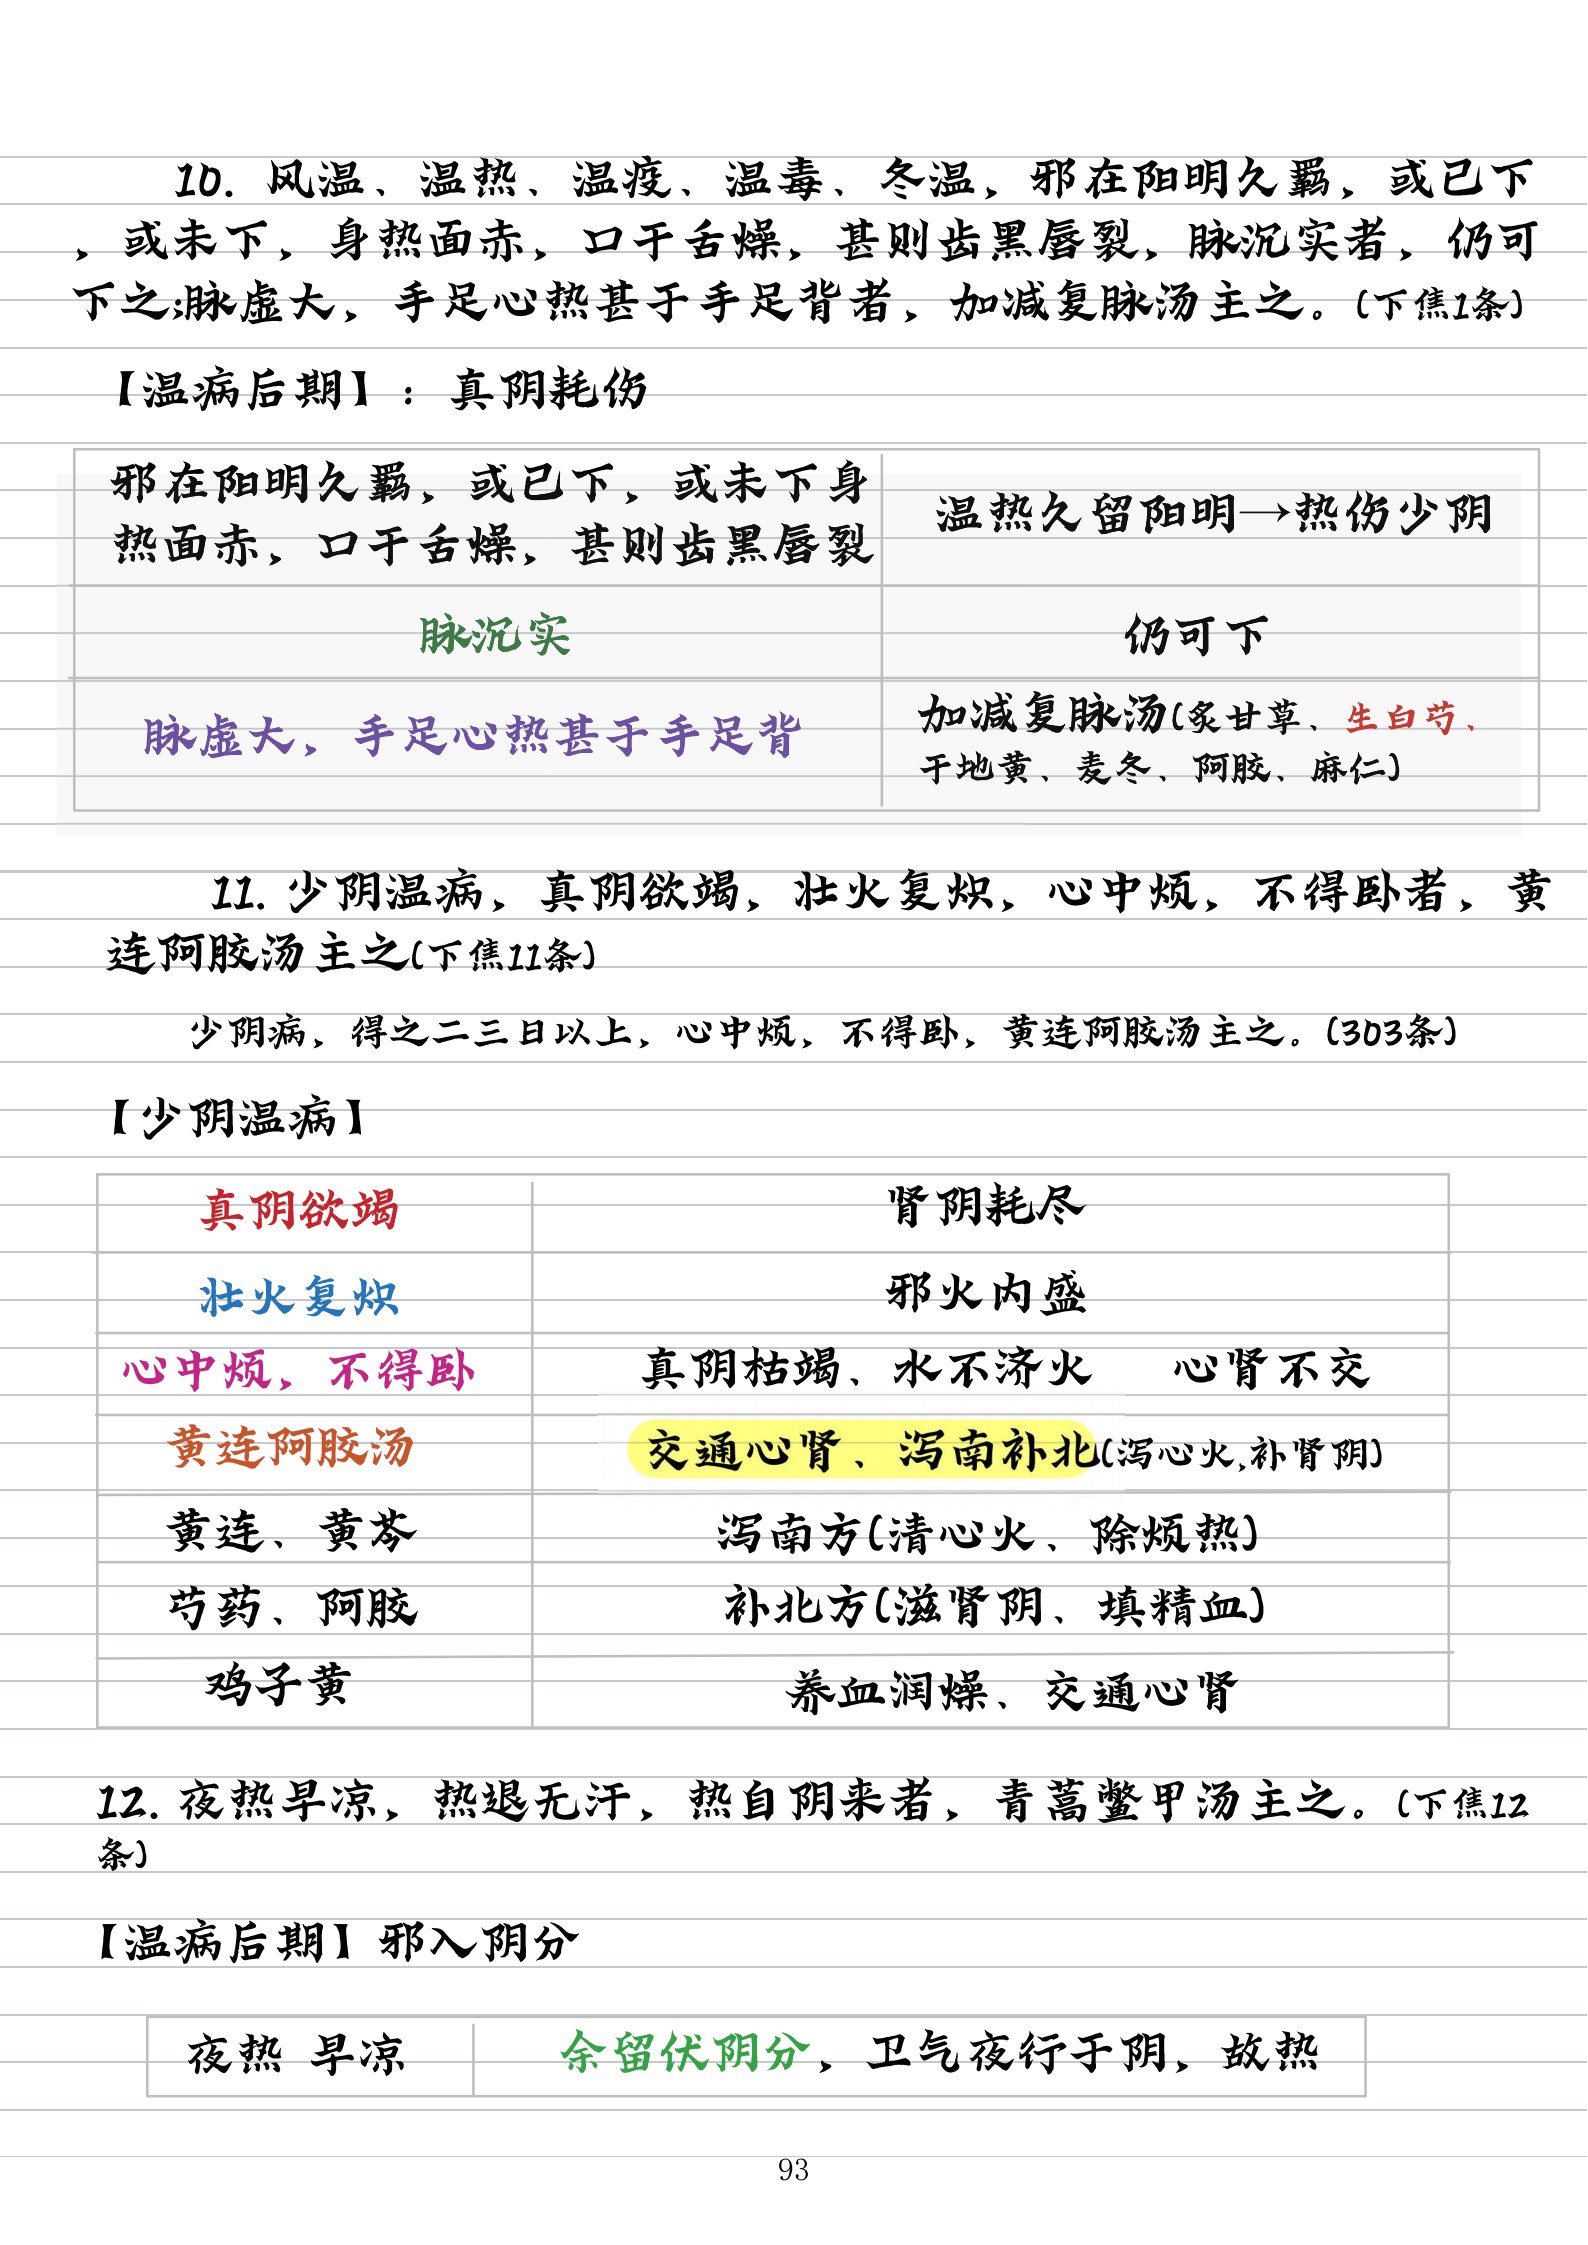 10. 风温、温热、温疫、温毒、冬温，邪在阳明久羁，或已下
，或未下，身热面赤，口干舌燥，甚则齿黑唇裂，脉沉实者，仍可
下之;脉虚大，手足心热甚于手足背者，加减复脉汤主之。(下焦1条)
【温病后期】：真阴耗伤
邪在阳明久羁，或已下，或未下身
热面赤，口干舌燥，甚则齿黑唇裂
温热久留阳明→热伤少阴
脉沉实
仍可下
脉虚大，手足心热甚于手足背
加减复脉汤(炙甘草、生白芍、
干地黄、麦冬、阿胶、麻仁)
11. 少阴温病，真阴欲竭，壮火复炽，心中烦，不得卧者，黄
连阿胶汤主之(下焦11条)
少阴病，得之二三日以上，心中烦，不得卧，黄连阿胶汤主之。(303条)
【少阴温病】
真阴欲竭
肾阴耗尽
壮火复炽
邪火内盛
心中烦，不得卧
真阴枯竭、水不济火 心肾不交
黄连阿胶汤
交通心肾、泻南补北(泻心火,补肾阴)
黄连、黄芩
泻南方(清心火、除烦热)
芍药、阿胶
补北方(滋肾阴、填精血)
鸡子黄
养血润燥、交通心肾
12. 夜热早凉，热退无汗，热自阴来者，青蒿鳖甲汤主之。(下焦12
条)
【温病后期】邪入阴分
夜热 早凉
余留伏阴分，卫气夜行于阴，故热
93